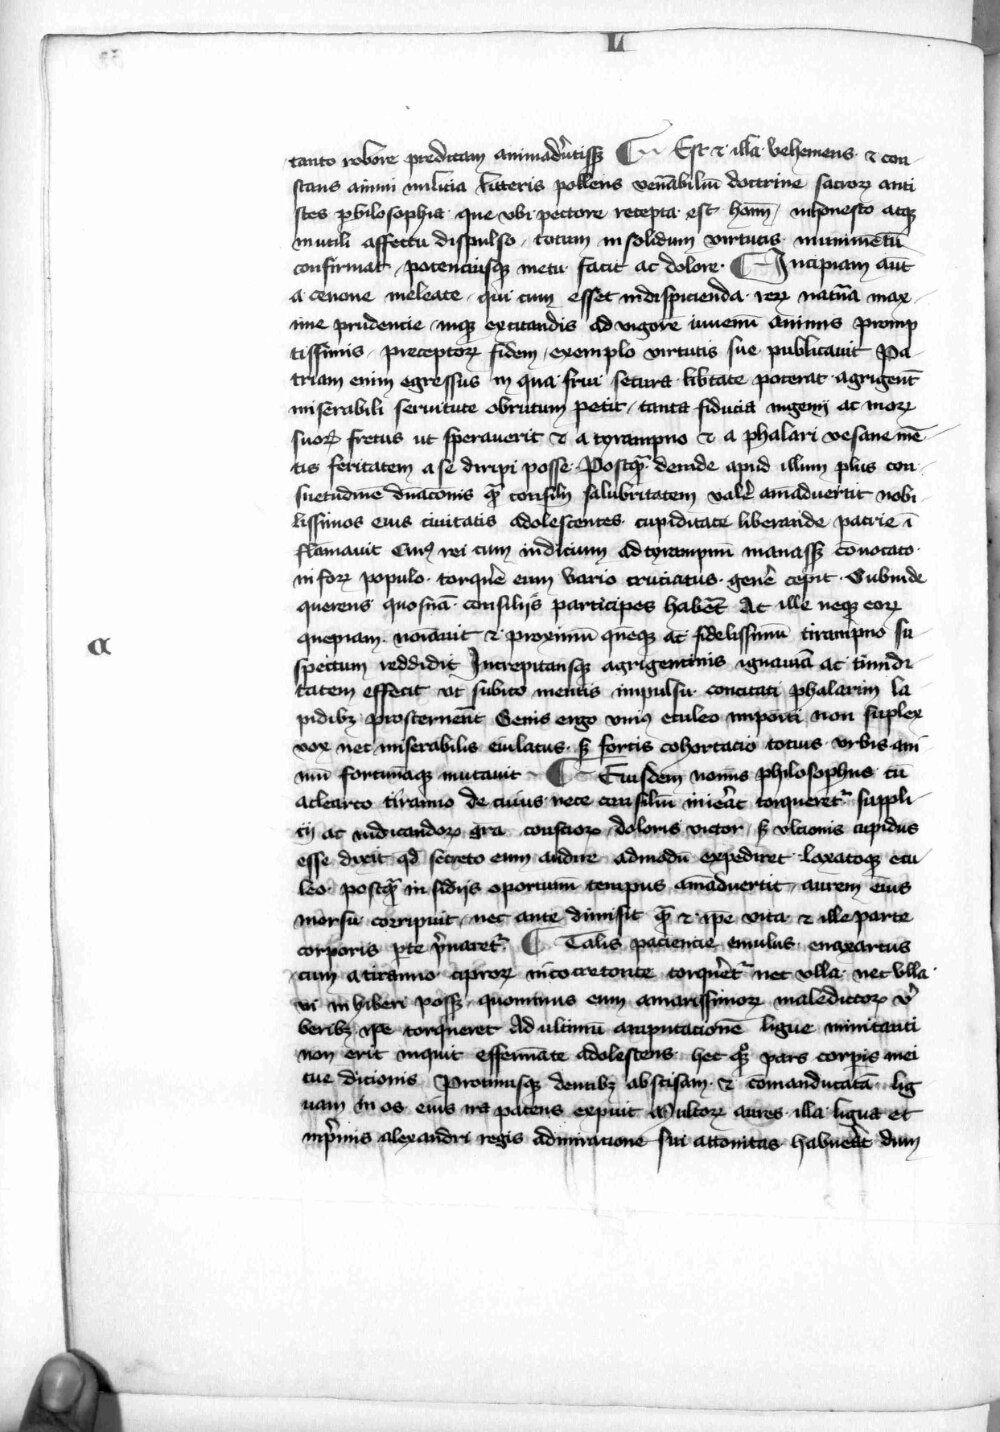 L
tanto robore preditam animadūtiſſꝫ ¶ Est ⁊ illa vehemens ⁊ con
stans animi milicia litteris pollens venābiliū doctrine sacroꝝ anti
stes philosophia que vbi pectore recepta est hom̄ inhonesto atqꝫ
inutili affectu dispulso totum in solidum virtutis munimētū
confirmat potenciusqꝫ metu facit ac dolore ¶ Incipiam aut̄
a cenone meleate qui cum esset in dispicienda reꝝ natūa max
ime prudencie inqꝫ excitandis ad vigorē iuuenū animis promp
tissimis preceptoꝝ fidem exemplo virtutis sue publicauit Pa
triam enim egressus in qua frui secura lib̄tate poterat agrigent̄
miserabili seruitute obrutum petit tanta fiducia ingenij ac moꝝ
suoꝝ fretus ut sperauerit ⁊ a tyrampno ⁊ a phalari vesane mē
tis feritatem a se diripi posse Postqͣ̄ deinde apud illum plus con
suetudine dn̄acionis qͣ̄ consilij salubritatem valē̄ aīaduertit nobi
lissimos eius ciuitatis adolescentes cupiditate liberande patrie ī
flāmauit Cuiꝰ rei cum indicium ad tyrampnū manasſꝫ cōuocato
in foꝝ populo torquē̄ eum vario cruciatus gen̄e cepit Subinde
querens quosnā consilijs participes habēt At ille neqꝫ eoꝝ
quepiam noīauit ⁊ proximū quēqꝫ ac fidelissimū tirampno su
spectum reddidit Increpitansqꝫ agrigentinis ignauiā ac timidi
tatem effecit ut subito mentis impulsu concitati phalarim la
pidibꝫ prosternēt Senis ergo vniꝰ eculeo impositi non suplex
vox nec miserabilis eiulatus sꝫ fortis cohortacio tocius vrbis ani
mū fortunāqꝫ mutauit ¶ Eiusdem nomīs philosophus cū
a clearco tiranno de cuius nece consiliū inierāt torqueretꝭ suppli
cij ac indicandoꝝ gra consioꝝ doloris victor sꝫ vlcionis cupidus
esse dixit qd secreto eum audire admodū expediret laxatoqꝫ ecu
leo postqͣ̄ insidijs oportunū tempus aīaduertit aurem eius
morsu corripuit nec ante dimisit qͣ̄ ⁊ ipe vita ⁊ ille parte
corporis pte p̄uaretꝭ ¶ Talis paciencie emulus enaxartus
cum a tiranno ciproꝝ nicocreonte torquēt̄ꝭ nec vlla vlla
vi inhiberi possꝫ quominus eum amarissimoꝝ maledictoꝝ v̄
beribꝫ ipe torqueret Ad ultimū amputacionē ligue minitanti
non erit inquit effemīate adolescens hec qͦꝫ pars corpis mei
tue dicionis Protinusqꝫ dentibꝫ abscisam ⁊ cōmanducatā lig
uam in os eius ira patens expuit Multoꝝ aures illa ligua et
inp̄mis alexandri regis admiracione sui attonitas habuerāt dum
a